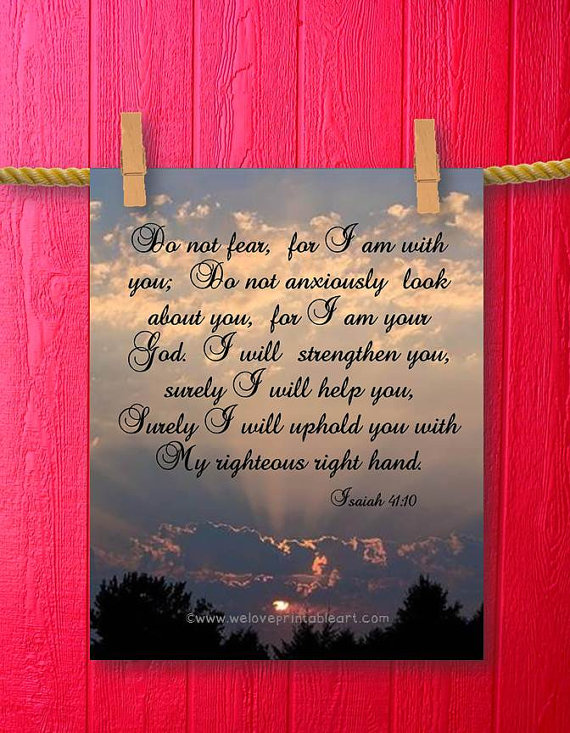 Do not fear, for I am with
you; Do not anxiously look
about you, for I am your
God. I will strengthen you,
surely I will help you,
Surely I will uphold you with
My righteous right hand.
Isaiah 41:10
©www.weloveprintableart.com